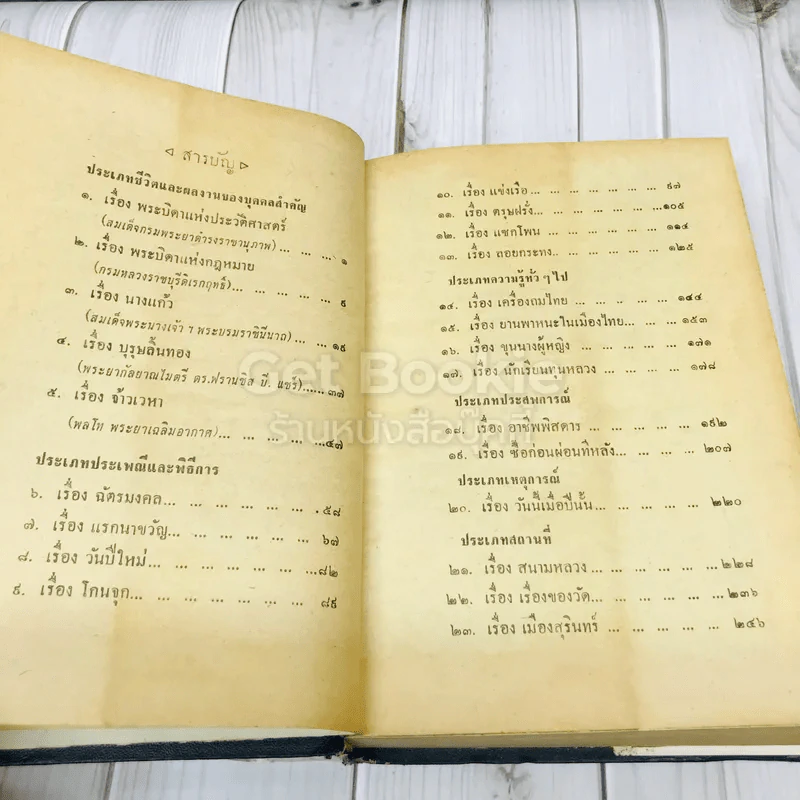 สารบัญ
ประเภทชีวิตและผลงานของบุคคลสำคัญ
๑. เรื่อง พระบิดาแห่งประวัติศาสตร์
(สมเด็จกรมพระยาดำรงราชานุภาพ) ... ... ... ๑
๒. เรื่อง พระบิดาแห่งกฎหมาย
(กรมหลวงราชบุรีดิเรกฤทธิ์)... ... ... ... ๙
๓. เรื่อง นางแก้ว
(สมเด็จพระนางเจ้า ฯ พระบรมราชินีนาถ) ... ... ๑๙
๔. เรื่อง บุรุษลิ้นทอง
(พระยากัลยาณไมตรี ดร.ฟรานซิส บี. แซร์)......๓๗
๕. เรื่อง จ้าวเวหา
(พลโท พระยาเฉลิมอากาศ) ... ... ... ... ๔๗
ประเภทประเพณีและพิธีการ
๖. เรื่อง ฉัตรมงคล... ... ... ... ... ๕๘
๗. เรื่อง แรกนาขวัญ... ... ... ... ... ๖๗
๘. เรื่อง วันปีใหม่... ... ... ... ... ...๘๒
๙. เรื่อง โกนจุก... ... ... ... ... ... ๘๙
๑๐. เรื่อง แข่งเรือ... ... ... ... ... ๙๗
๑๑. เรื่อง ตรุษฝรั่ง... ... ... ... ...๑๐๕
๑๒. เรื่อง แซกโพน ... ... ... ... ... ๑๑๔
๑๓. เรื่อง ลอยกระทง. ... ... ... ... ๑๒๕
ประเภทความรู้ทั่ว ๆ ไป
๑๔. เรื่อง เครื่องถมไทย ... ... ... ... ๑๔๔
๑๕. เรื่อง ยานพาหนะในเมืองไทย... ... ... ๑๕๓
๑๖. เรื่อง ขุนนางผู้หญิง ... ... ... ... ๑๗๑
๑๗. เรื่อง นักเรียนทุนหลวง ... ... ... ๑๗๘
ประเภทประสพการณ์
๑๘. เรื่อง อาชีพพิสดาร ... ... ... ... ๑๙๒
๑๙. เรื่อง ซื้อก่อนผ่อนทีหลัง... ... ... ...๒๐๗
ประเภทเหตุการณ์
๒๐. เรื่อง วันนี้เมื่อปีนั้น... ... ... ... ๒๒๐
ประเภทสถานที่
๒๑. เรื่อง สนามหลวง ... ... ... ... ...๒๒๘
๒๒. เรื่อง เรื่องของวัด... ... ... ... ...๒๓๖
๒๓. เรื่อง เมืองสุรินทร์ ... ... ... ... ... ๒๔๖
Get Bookie
ร้านหนังสือบุ๊คกี้